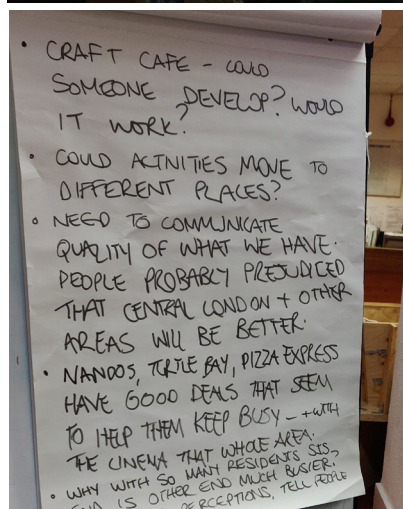 • CRAFT CAFE - COULD
SOMEONE DEVELOP? WOULD
IT WORK?
• COULD ACTIVITIES MOVE TO
DIFFERENT PLACES?
• NEED TO COMMUNICATE
QUALITY OF WHAT WE HAVE.
PEOPLE PROBABLY PREJUDICED
THAT CENTRAL LONDON + OTHER
AREAS WILL BE BETTER.
• NANDOS, TURTLE BAY, PIZZA EXPRESS
HAVE GOOD DEALS THAT SEEM
TO HELP THEM KEEP BUSY - + WITH
THE CINEMA THAT WHOLE AREA.
• WHY WITH SO MANY RESIDENTS SIS
END IS OTHER END MUCH BUSIER.
PERCEPTIONS, TELL PEOPLE